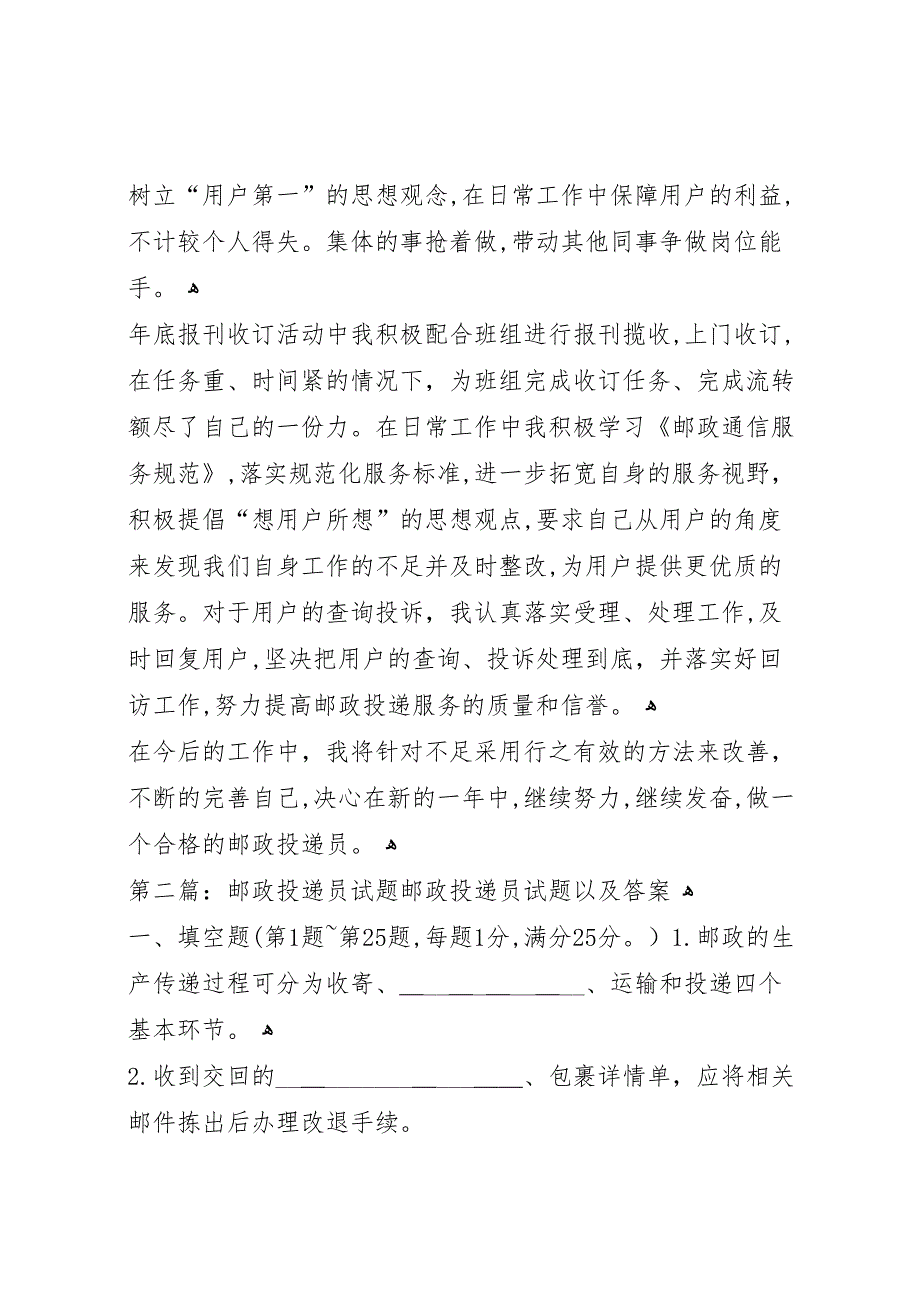 树立“用户第一”的思想观念,在日常工作中保障用户的利益,
不计较个人得失。集体的事抢着做,带动其他同事争做岗位能
手。 ﻫ
年底报刊收订活动中我积极配合班组进行报刊揽收,上门收订,
在任务重、时间紧的情况下，为班组完成收订任务、完成流转
额尽了自己的一份力。在日常工作中我积极学习《邮政通信服
务规范》,落实规范化服务标准,进一步拓宽自身的服务视野，
积极提倡“想用户所想”的思想观点,要求自己从用户的角度
来发现我们自身工作的不足并及时整改,为用户提供更优质的
服务。对于用户的查询投诉，我认真落实受理、处理工作,及
时回复用户,坚决把用户的查询、投诉处理到底，并落实好回
访工作,努力提高邮政投递服务的质量和信誉。 ﻫ
在今后的工作中，我将针对不足采用行之有效的方法来改善，
不断的完善自己,决心在新的一年中,继续努力,继续发奋,做一
个合格的邮政投递员。 ﻫ
第二篇：邮政投递员试题邮政投递员试题以及答案 ﻫ
一、填空题(第1题~第25题,每题1分,满分25分。）1.邮政的生
产传递过程可分为收寄、_______________、运输和投递四个
基本环节。 ﻫ
2.收到交回的____________________、包裹详情单，应将相关
邮件拣出后办理改退手续。